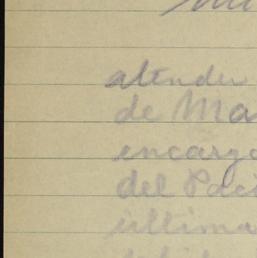 atender
de Ma
encarg
del Paci
ultima